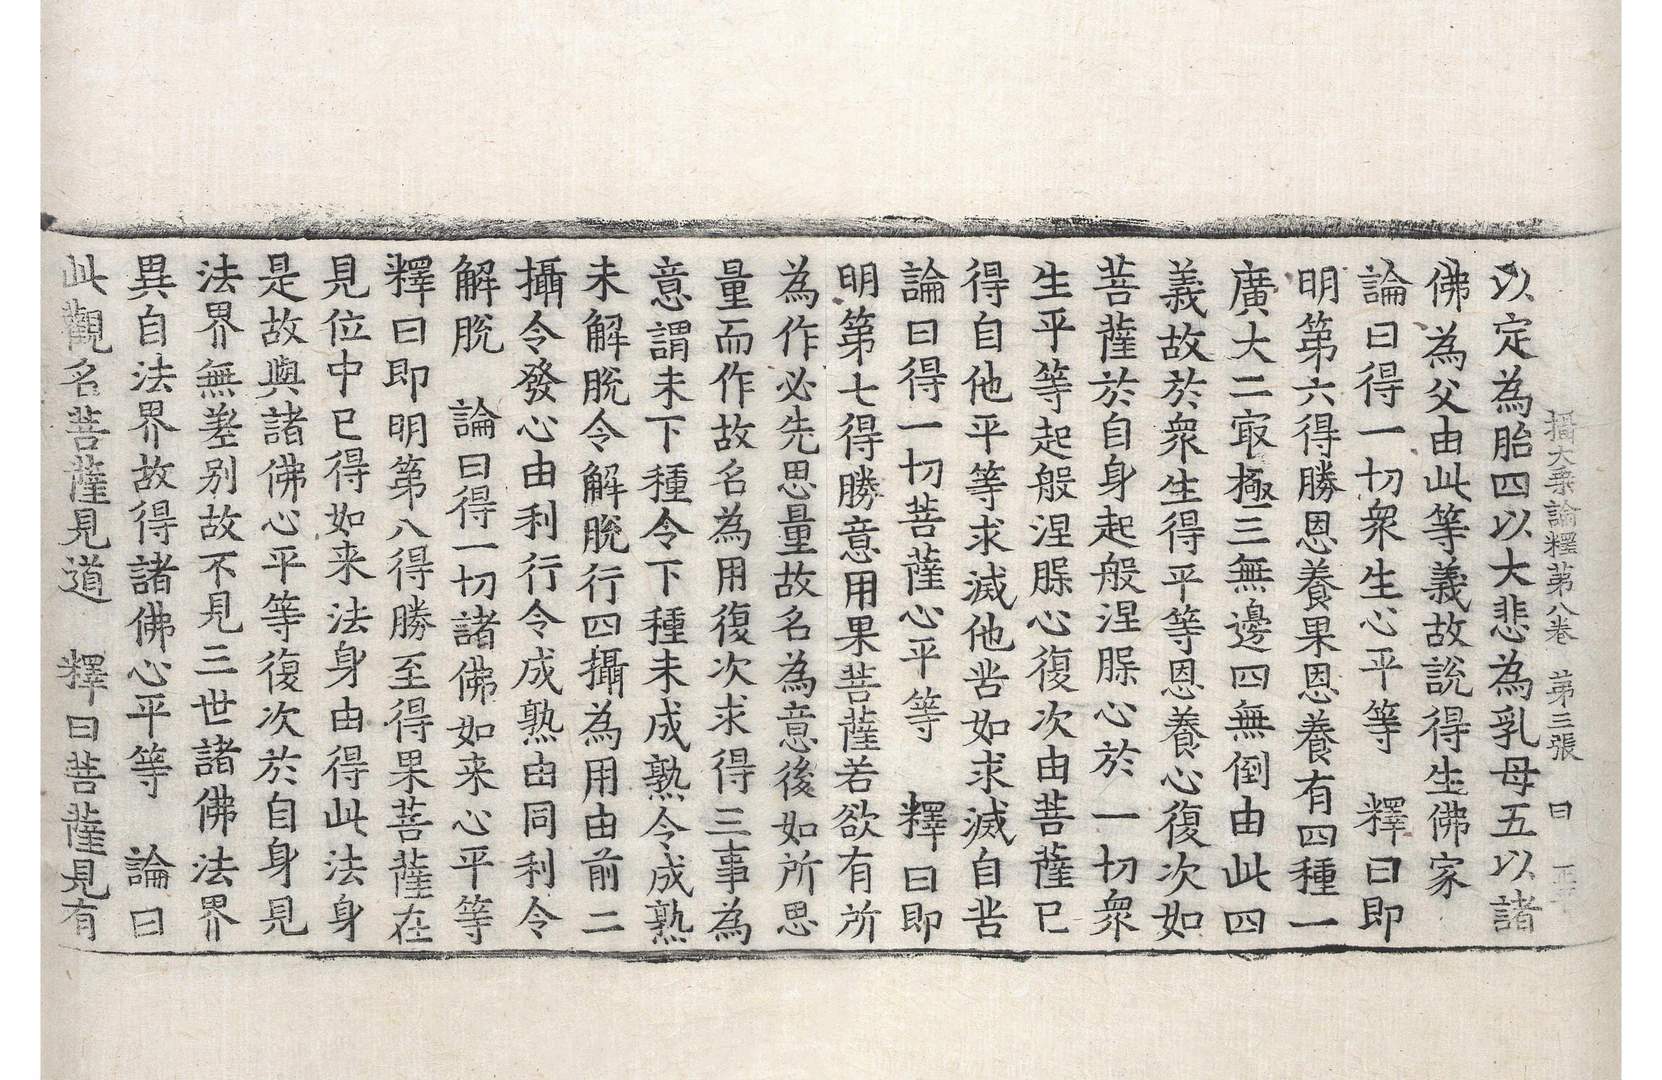 攝大乘論釋第八卷 第三張 曰
以定為胎四以大悲為乳母五以諸
佛為父由此等義故說得生佛家
論曰得一切衆生心平等 釋曰即
明第六得勝恩養果恩養有四種一
廣大二㝡極三無邊四無倒由此四
義故於衆生得平等恩養心復次如
菩薩於自身起般涅槃心於一切衆
生平等起般涅槃心復次由菩薩已
得自他平等求滅他苦如求滅自苦
論曰得一切菩薩心平等 釋曰即
明第七得勝意用果菩薩若欲有所
為作必先思量故名為意後如所思
量而作故名為用復次求得三事為
意謂未下種令下種未成熟令成熟
未解脫令解脫行四攝為用由前二
攝令發心由利行令成熟由同利令
解脫 論曰得一切諸佛如来心平等
釋曰即明第八得勝至得果菩薩在
見位中已得如来法身由得此法身
是故與諸佛心平等復次於自身見
法界無差別故不見三世諸佛法界
異自法界故得諸佛心平等 論曰
此觀名菩薩見道 釋曰菩薩見有